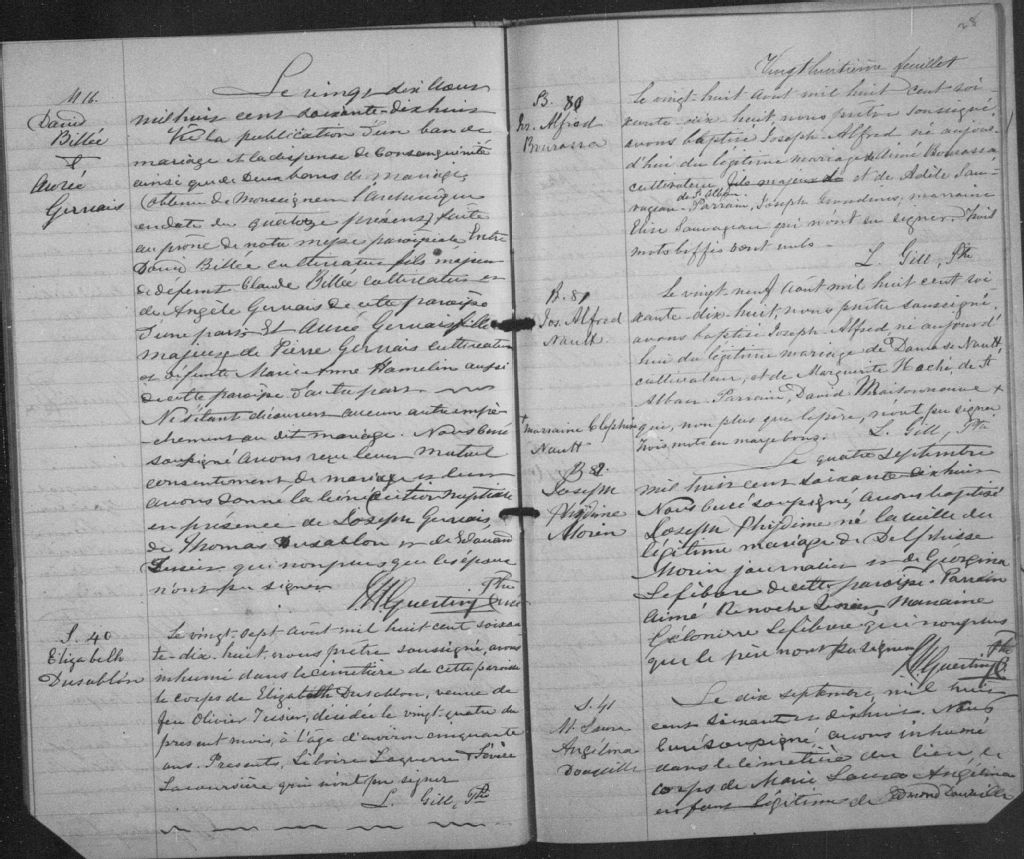 M 16.
David
Billée
&
Aurée
Gervais
Le vingt dix Aout
mil huit cent soixante-dix huit
Vu la publication d'un ban de
mariage et la dispense de consanguinité
ainsi que de deux bans de mariage,
(obtenu de Monseigneur l'archevêque
en date du quatorze présent) faite
au prône de notre messe paroissiale Entre
David Billée cultivateur fils majeur
de defunt Claude Billée cultivateur et
de Angèle Gervais de cette paroisse
d'une part; Et Aurée Gervais fille
majeure de Pierre Gervais cultivateur
et défunte Marie Anne Hamelin aussi
de cette paroisse d'autre part
N'étant découvert aucun autre empê-
chement au dit mariage. Nous curé
soussigné avons reçu leur mutuel
consentement de mariage et leur
avons donné la bénédiction nuptiale
en présence de Joseph Gervais,
de Thomas Dusablon et de Edouard
Tessier qui non plus que les époux
n'ont pu signer
Guertin Ptre
curé
S. 40
Elizabeth
Dusablon
Le vingt-sept août mil huit cent soixan-
te-dix-huit, nous prêtre soussigné, avons
inhumé dans le cimetière de cette paroisse
le corps de Elizabeth Dusablon, veuve de
feu Olivier Tessier, décédée le vingt-quatre du
présent mois, à l'âge d'environ cinquante
ans. Présents, Liboire Laquerre &
Lacoursière qui n'ont pu signer
L. Gill, Ptre
28
Vingt huitième feuillet
B. 80
Jos. Alfred
Bourassa
Le vingt-huit aout mil huit cent soi-
xante-dix huit, nous prêtre soussigné,
avons baptisé Joseph Alfred né aujour-
d'hui du légitime mariage de Aimé Bourassa
cultivateur, fils majeur de et de Adèle Sau-
de St Alban
vageau. Parrain, Joseph Grondines, marraine
Elise Sauvageau qui n'ont su signer. Trois
mots biffés sont nuls.
L. Gill, Ptre
B. 81
Jos. Alfred
Nault
Le vingt-neuf août mil huit cent soi-
xante-dix-huit, nous prêtre soussigné,
avons baptisé Joseph-Alfred, né aujourd'
hui du légitime mariage de Damase Nault,
cultivateur, et de Marguerite Hache, de St
Alban. Parrain, David Maisonneuve +
+ marraine Elephine
Nault
qui, non plus que le père, n'ont pu signer
Trois mots en marge bons.
L. Gill, Ptre
B 82
Joseph
Phydime
Morin
Le quatre septembre
mil huit cent soixante dix huit
Nous curé soussigné, avons baptisé
Joseph Phydime né la veille du
légitime mariage de Delphisse
Morin journalier et de Georgina
Lefebvre de cette paroisse. Parrain
Aimé Marraine
Lefebvre qui non plus
que le père n'ont pu signer
Guertin Ptre
C.
S. 41
M. Laura
Angélina
Douville
Le dix septembre, mil huit
cent soixante et dix huit. Nous
curé soussigné, avons inhumé
dans le cimetière du lieu, le
corps de Marie Laura Angélina
enfant légitime de Edmond Douville